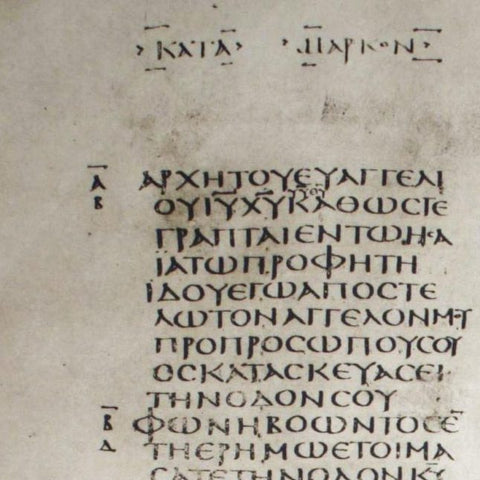 ΚΑΤΑ ΜΑΡΚΟΝ
Α̅ ΑΡΧΗΤΟΥΕΥΑΓΓΕΛΙ
Β ΟΥΙ̅Υ̅Χ̅Υ̅ΚΑΘΩϹΓΕ
ΓΡΑΠΤΑΙΕΝΤΩΗϹΑ
ΪΑΤΩΠΡΟΦΗΤΗ
ΙΔΟΥΕΓΩΑΠΟϹΤΕ
ΛΩΤΟΝΑΓΓΕΛΟΝΜΟΥ
ΠΡΟΠΡΟϹΩΠΟΥϹΟΥ
ΟϹΚΑΤΑϹΚΕΥΑϹΕΙ
ΤΗΝΟΔΟΝϹΟΥ
Β̅ ΦΩΝΗΒΟΩΝΤΟϹΕ̅
Δ ΤΗΕΡΗΜΩΕΤΟΙΜΑ
ϹΑΤΕΤΗΝΟΔΟΝΚ̅Υ̅